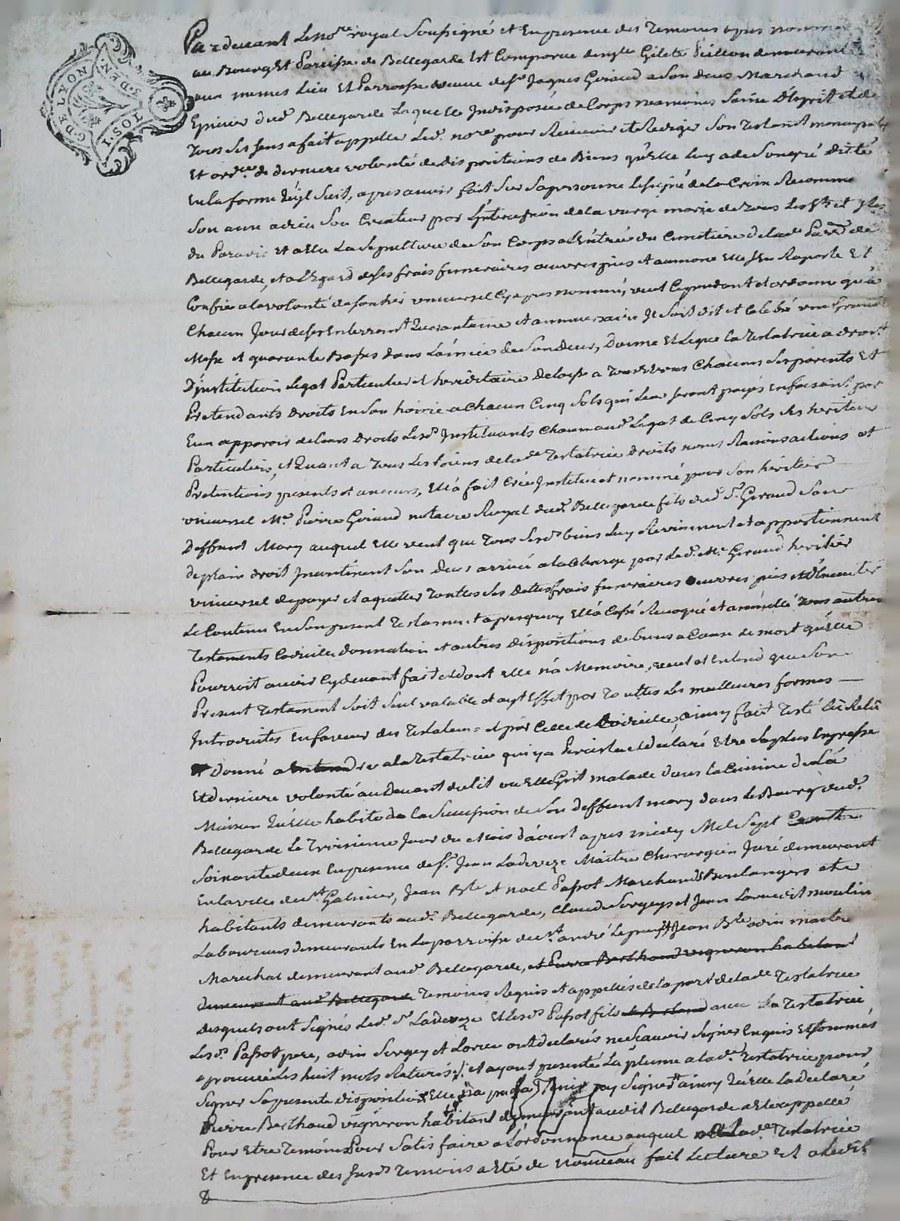 G. DE LYON
3. D. DEN.
I. SOL
Pardevant Le no.re royal Soussigné et En presence des Temoins apres nommés
au Bourg Et Paroisse de Bellegarde Est Comparue demlle Gilete Peillon demeurant
aux memes Lieu Et Parroisse veuve de s.r Jaques Giraud a Son deces Marchand
Epicier dud. Bellegarde Laquelle Indisposée de Corps neamoins Saine D'Esprit et de
Tous Ses Sens a fait appeller Led. no.re pour Recevoir et Rediger Son Testament
Et ord.ce de derniere volonté de dispositions de Biens qu'Elle luy a de Son gré dicté
En la forme qu'il Suit, apres avoir fait Sur Sa personne Le Signe de la Croix Recommandé
Son ame a dieu Son Createur par L'Intercession de la vierge marie de Tous Les S.ts et S.tes
du Paradis Et a Elu La Sepulture de Son Corps a L'Entrée du Cimetiere de lad. Par.sse de
Bellegarde, et a L'Egard de Ses frais funeraires œuvres pies et aumone Elle S'en Raporte Et
Confie a la volonté de Son her. universel Cy apres nommé, veut Cependant et ordonne qu'à
Chacun Jour de Ses Enterrement Quarantaine et anniversaire Il Soit dit et Celebré une Grande
Messe et quarante Basses dans L'année de Son deces, Donne Et Legue La Testatrice a droit
D'institution Legat Particulier et hereditaire delaisse a Tous Et uns Chacuns Ses parents Et
Pretendants droits En Son hoirie a Chacun Cinq Sols qui Leur Seront payés En faisant par
Eux apparoir de Leurs droits Les Instituants Chacun aud. Legat de Cinq Sols Ses heritiers
Particuliers, et Quant a Tous Les Biens de lad. Testatrice droits noms Raisons actions et
Pretentions, presents et avenirs, Elle a fait Créé Institué et nommé pour Son heritier
universel M.e Pierre Giraud notaire Royal dud. Bellegarde fils dud. S. Giraud Son
Deffunt Mary auquel Elle veut que Tous Sesd. biens Luy Reviennent et appartiennent
de plain droit Incontinent Son deces arrivé a la Charge par Led. M.e Giraud heritier
universel de payer et aquitter Toutes Ses dettes frais funeraires œuvres pies et
Le Contenu En Son present Testament et apres quoy Elle a Cassé Revoqué et annullé Tous autres
Testaments Codicille donnation et autres dispositions de biens a Cause de mort qu'Elle
Pourroit avoir Cy devant fait et dont elle n'a Memoire, veut et Entend que Son
Present Testament Soit Seul valable et ayt Effet par Toutes Les meilleures formes
Introduites En faveur des Testateurs et par Celle de Codicille, ainsy fait Testé Lu Relu
Et donné a Entendre a la Testatrice qui y a Persisté et declaré Etre Sa plus Expresse
Et derniere volonté au devant du lit ou Elle Git malade dans La Cuisine de La
Maison qu'Elle habite de la Succession de Son deffunt mary dans Le Bourg dud.
Bellegarde Le Troisieme Jour du Mois d'avout apres midy Mil Sept Cents
Soixante deux En presence de s.r Jean Ladeveze Maitre Chirurgien Juré demeurant
En la ville de S.t Galmier, Jean B.te et noel Passot Marchands Boulangers
habitants demeurants aud. Bellegarde, Claude Sergey et Jean
Laboureurs demeurants En la parroisse de S.t andré Le puy, Jean B.te odin maitre
Marechal demeurant aud. Bellegarde, et Pierre Berthaud vigneron habitant
demeurant aud. Bellegarde Temoins Requis et appellés de la part de lad. Testatrice
desquels ont Signés Led. s. Ladeveze Et Led. Passot fils avec La Testatrice
Led. Passot pere, odin Sergey et ont declarés ne Scavoir Signer Enquis Et Sommés
approuvé Les huit mots Raturés, et ayant presenté La plume a lad. Testatrice pour
Signer Sa presente disposition Elle n'a pu Signer ainsy qu'Elle L'a declaré
Pierre Berthaud vigneron habitant demeurant audit Bellegarde a Eté appellé
Pour Etre Temoin Pour Satisfaire a L'ordonnance auquel lad. Testatrice
Et En presence des Susd. Temoins a Eté de nouveau fait Lecture Et a Led.